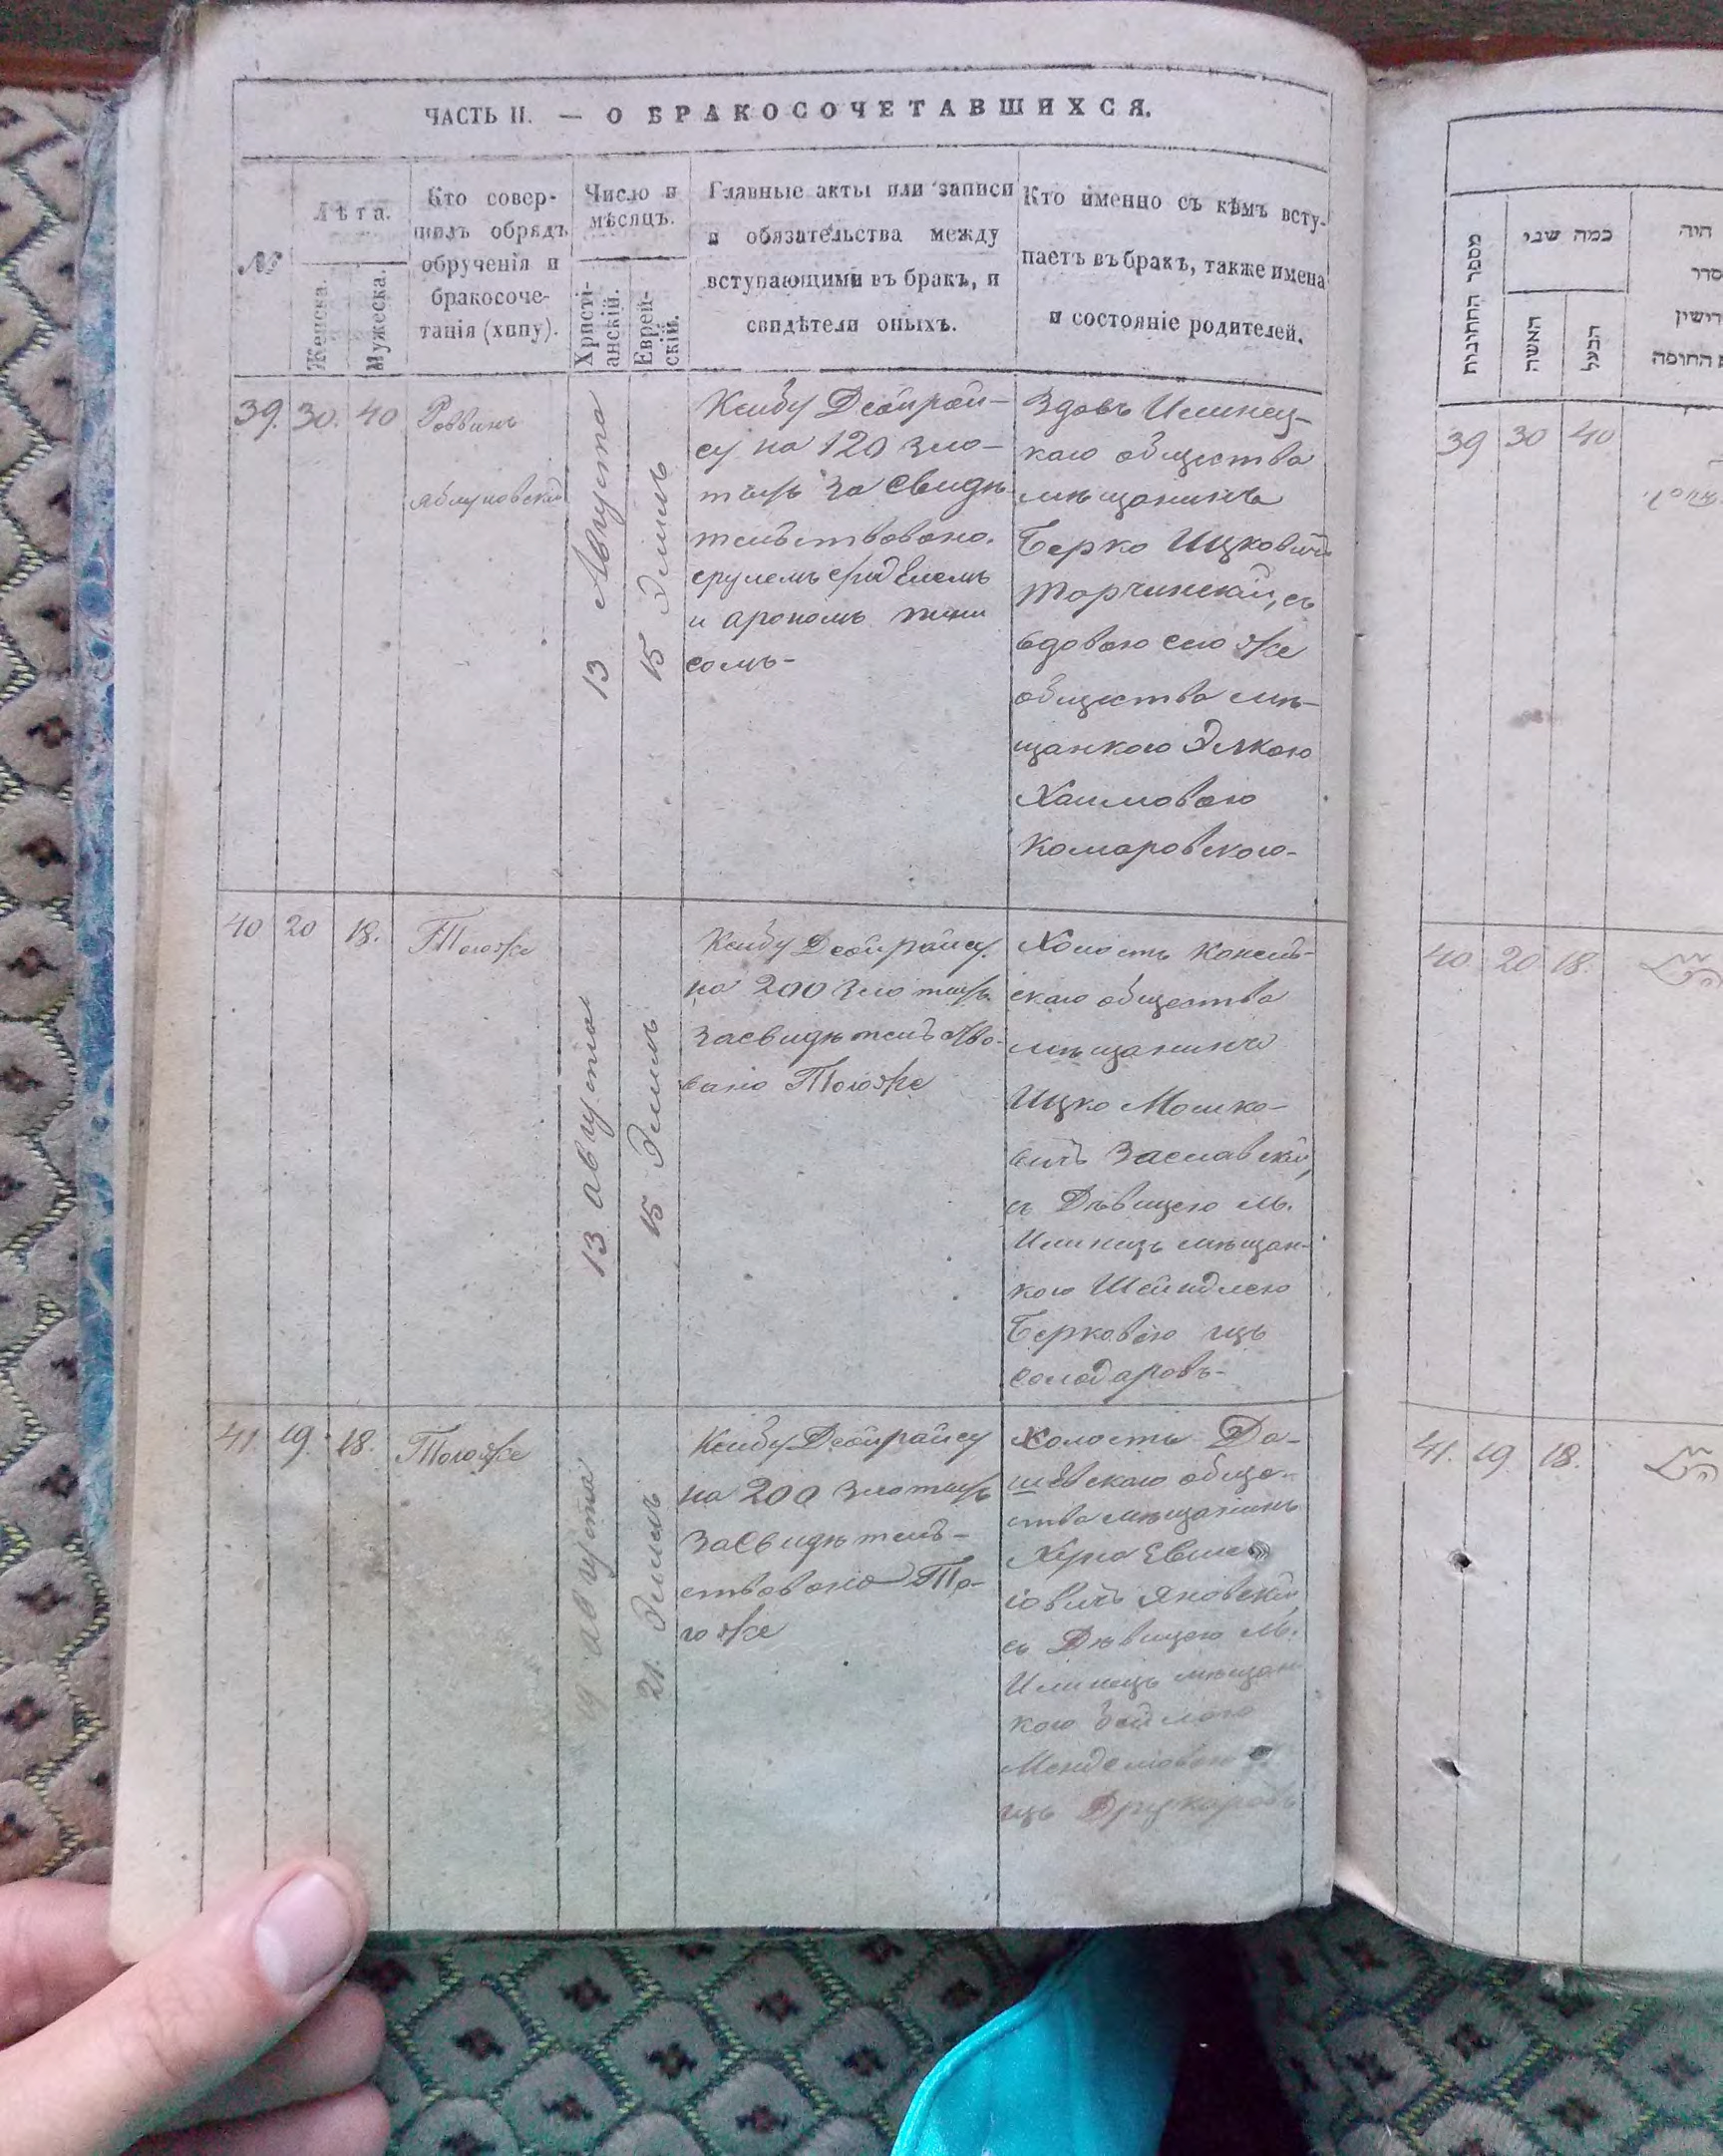 ЧАСТЬ II. — О БРАКОСОЧЕТАВШИХСЯ.
№
Лѣта.
Женска.
Мужеска.
Кто совер-
шилъ обрядъ
обрученія и
бракосоче-
танія (хипу).
Число и
мѣсяцъ.
Христі-
анскій.
Еврей-
скій.
Главные акты или записи
и обязательства между
вступающими въ бракъ, и
свидѣтели оныхъ.
Кто именно съ кѣмъ всту-
паетъ въ бракъ, также имена
и состояніе родителей.
39. 30. 40
Раввинъ
яблуновскій
13 Августа
15 Элиль
Ксибу Деойрай-
су на 120 зло-
тыхъ Засвидѣ
тельствовано.
и арономъ
сомъ-
Вдовъ Илинец-
каго общества
мѣщанинъ
Берко Ицковичъ
Торчинскій, съ
вдовою сего же
общества мѣ-
щанкою Элкою
Хаимовою
Комаровскою-
40 20 18.
Тогоже
13 августа
15 Элиль
Ксибу Деойрайсу
на 200 злотыхъ
засвидѣтельство-
вано Тогоже
Холостъ
скаго общества
мѣщанинъ
Ицко Мошко-
вичъ Заславскій,
съ Дѣвицею м.
Илинецъ мѣщан-
кою Шейндлею
Берковою изъ
солодаровъ-
41. 19. 18.
Тогоже
19 августа
21. Элиль
Ксибу Деойрайсу
на 200 злотыхъ
Засвидѣтель-
ствовано То-
гоже
Холостъ Да-
шевскаго обще-
ства мѣщанинъ
іовичъ Яновскій,
съ Дѣвицею м.
Илинецъ мѣщан
кою Бейлою
Менделіовою
изъ Друкаровъ
מספר החתונות
כמה שני
האשה
הבעל
היה
סדר
החופה
39 30 40
40 20 18.
41. 19 18.